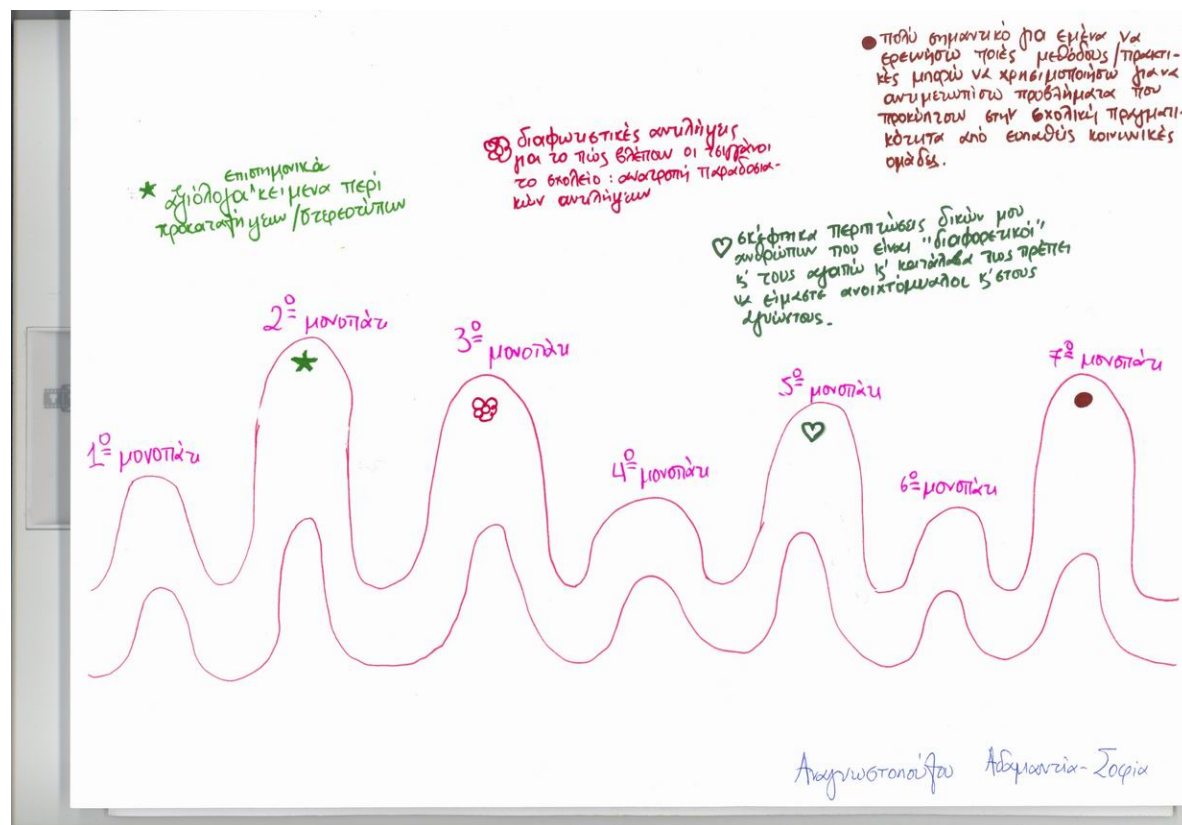 ● πολύ σημαντικό για εμένα να
ερευνήσω ποιές μεθόδους/πρακτι-
κές μπορώ να χρησιμοποιήσω για να
αντιμετωπίσω προβλήματα που
προκύπτουν στην σχολική πραγματι-
κότητα από ευπαθείς κοινωνικές
ομάδες.
διαφωτιστικές αντιλήψεις
για το πώς βλέπουν οι τσιγγάνοι
το σχολείο: ανατροπή παραδοσια-
κών αντιλήψεων
επιστημονικά
★ αξιόλογα^κείμενα περί
προκαταλήψεων/στερεοτύπων
♡ σκέφτηκα περιπτώσεις δικών μου
ανθρώπων που είναι "διαφορετικοί"
κ' τους αγαπώ κ' κατάλαβα πως πρέπει
να είμαστε ανοιχτόμυαλοι κ' στους
αγνώστους.
1º μονοπάτι
2º μονοπάτι
3º μονοπάτι
4º μονοπάτι
5º μονοπάτι
6º μονοπάτι
7º μονοπάτι
Αναγνωστοπούλου Αδαμαντία-Σοφία